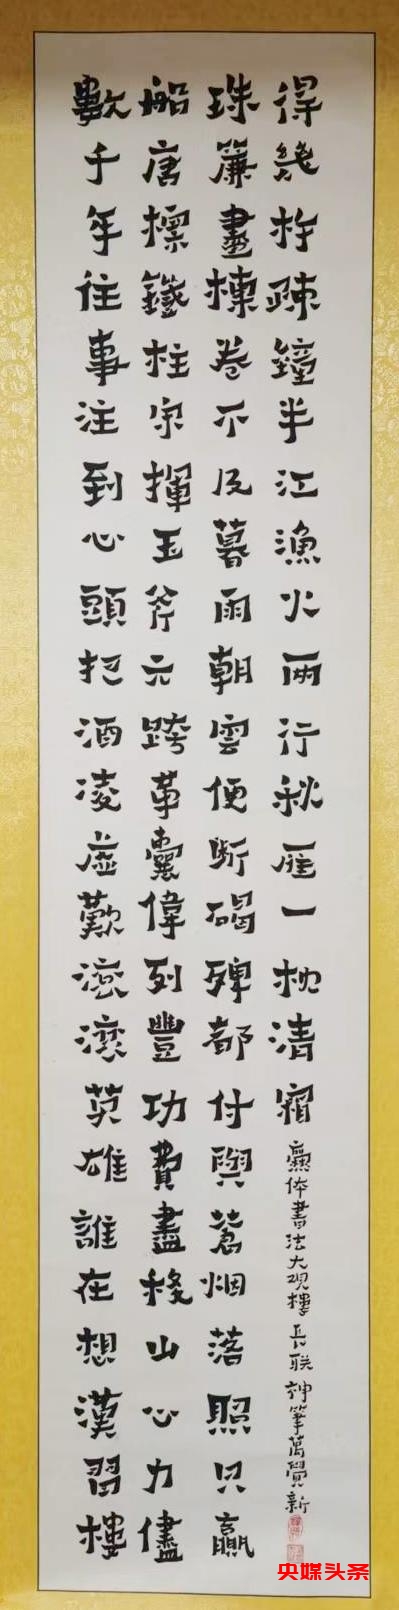 數千年往事注到心頭把酒凌虛歎滾滾英雄誰在想漢習樓
船唐標鐵柱宋揮玉斧元跨革囊偉列豐功費盡移山心力儘
珠簾畫棟卷不及暮雨朝雲便断碣碑都付與蒼烟落照只贏
得幾杵疎鐘半江漁火兩行秋雁一枕清霜
爨体書法大观樓長联神筆萬覺新
央媒头条